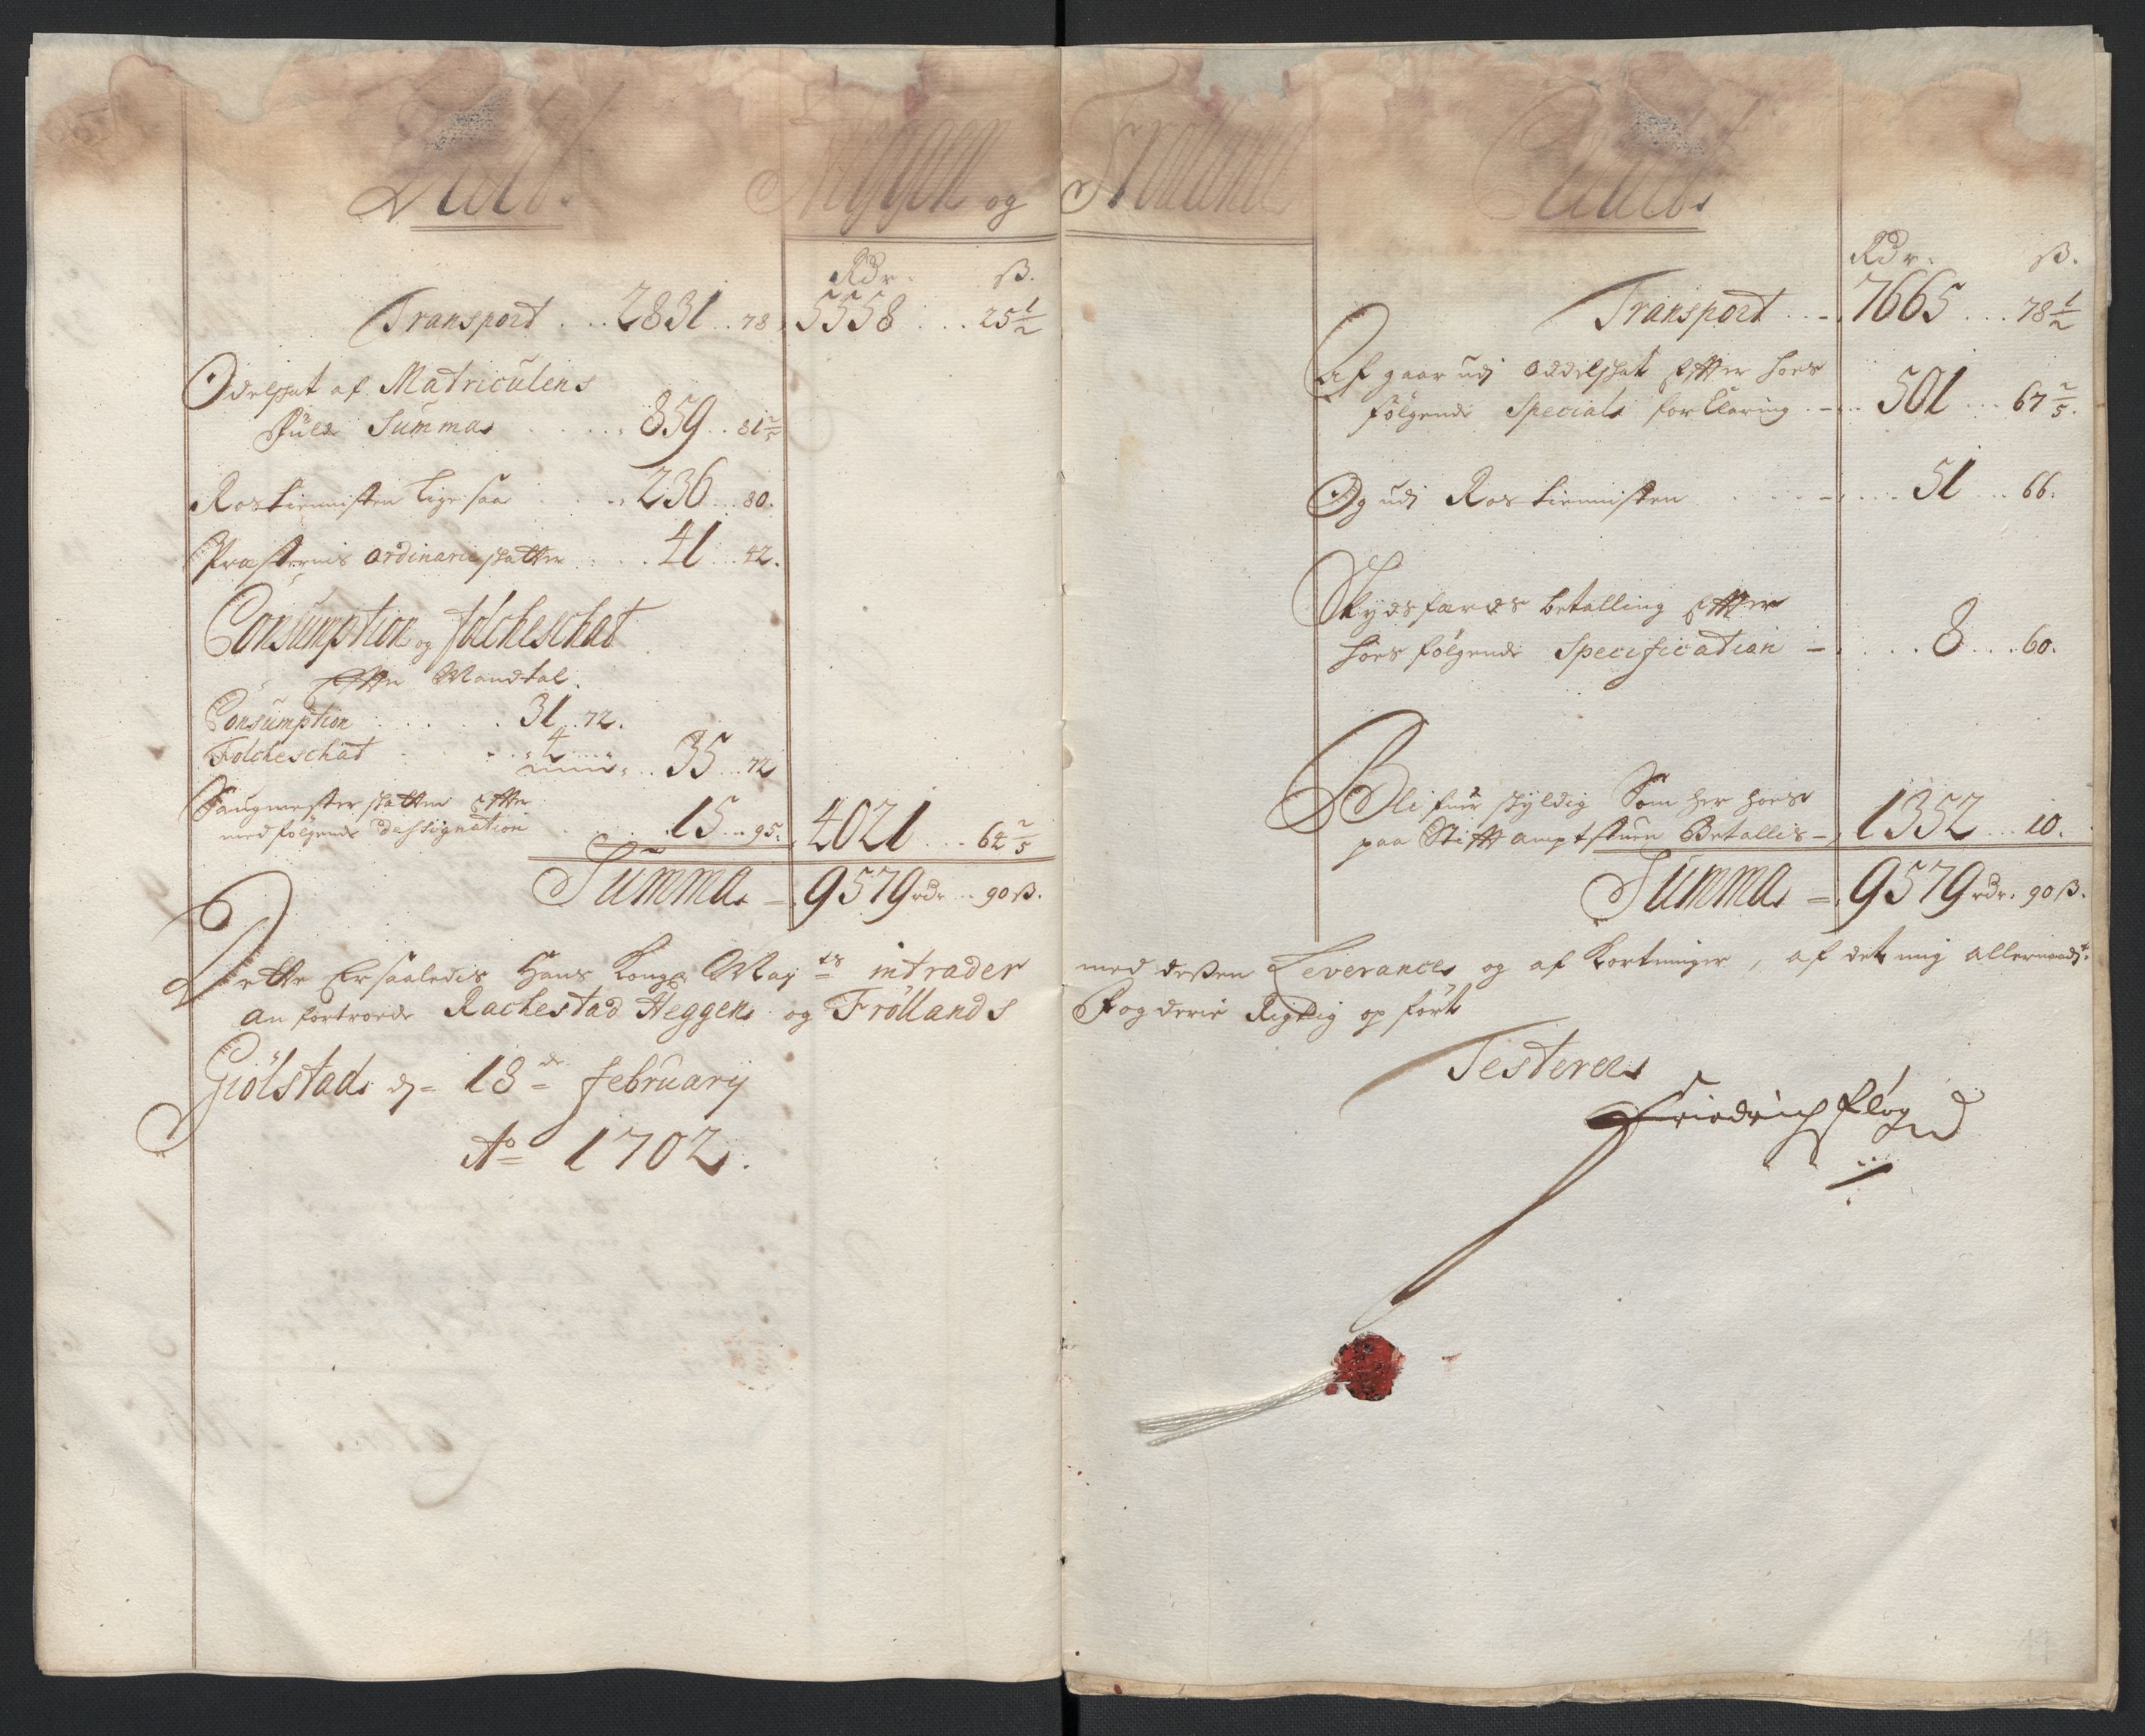 Debet. Heggen og Frøland Credit
Rdr. ß.
Transport . . . 2831 . . 78 5558 . . . 25½
Odelschat af Matriculens
fulde Summa . . . . . 859 . . 81⅖
Rostienisten ligesaa . . . . 236 . . 80.
Præsternis ordinarie skatter . . . . 41 . . 42.
Consumption og folcheschat
Effter Mandtal.
Consumption . . . . . 31 . . 72.
Folcheschat . . . 4 . . . 35 . . 72
Saugmester skatten Effter
medfølgende Designation . . . 15 . . 95. 4021 . . . 64⅖
Summa = 9579 rdr . . 90 ß.
Rdr. ß.
Transport . . 7665 . . . 78½
Af gaar udj Oddelschat Effter hoes
følgende Specials forklaring . . 501 . . . 67⅖.
Og udj Rostienisten . . . . 51 . . . 66.
Skydsfærds betalling Effter
hoes følgende Specification . . . . 8 . . . 60.
Blifuer skyldig Som her hoes
paa Stifft amptstuen Betallis 1352 . . . 10.
Summa = 9579 rdr. 90 ß.
Dette Er saaledis Hans Kongl. May ts intrader med deßen Leverance og af Kortninger, af det mig allernaadst.
an fortroede Rachestad Heggen og Frøllands Fogderie Rigtig opført
Giølstad d= 18 de february
Ao 1702.
Testerer
Friedrich fløg